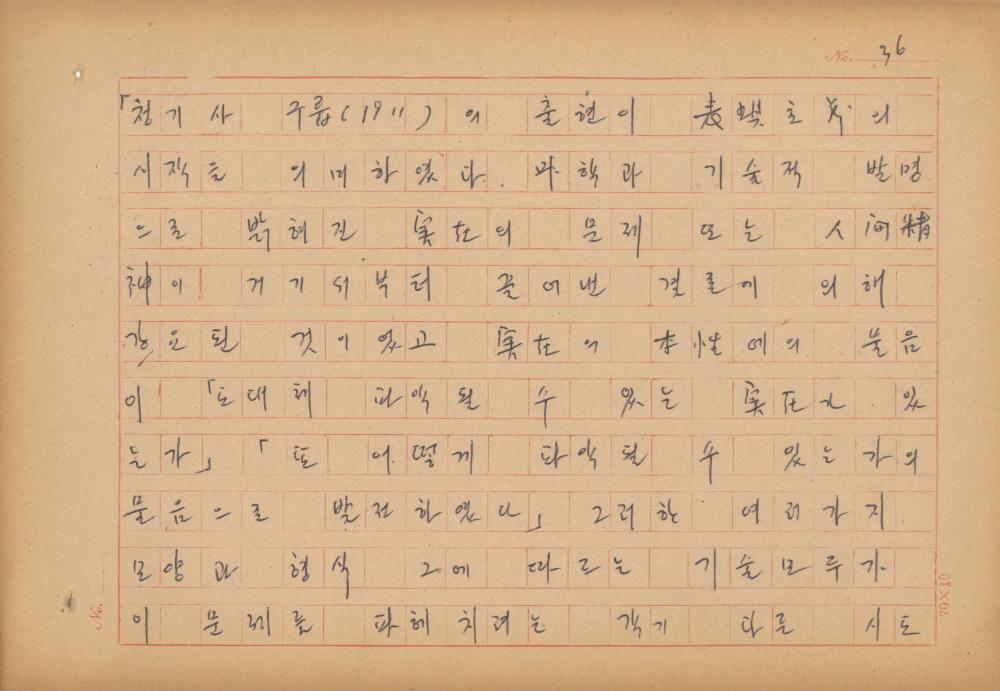 No. 36
「청기사 구룹(1911)의 출현이 表現主義의
시작을 의미하였다. 과학과 기술적 발명
으로 밝혀진 実在의 문제 또는 人间精
神이 거기서부터 끌어낸 결론에 의해
강요된 것이었고 実在의 本性에의 물음
이 「도대체 파악될 수 있는 実在가 있
는가」 「또 어떻게 파악될 수 있는가의
물음으로 발전하였다」 그러한 여러가지
모양과 형식 그에 따르는 기술모두가
이 문제를 파헤치려는 각기 다른 시도
No.
20×10